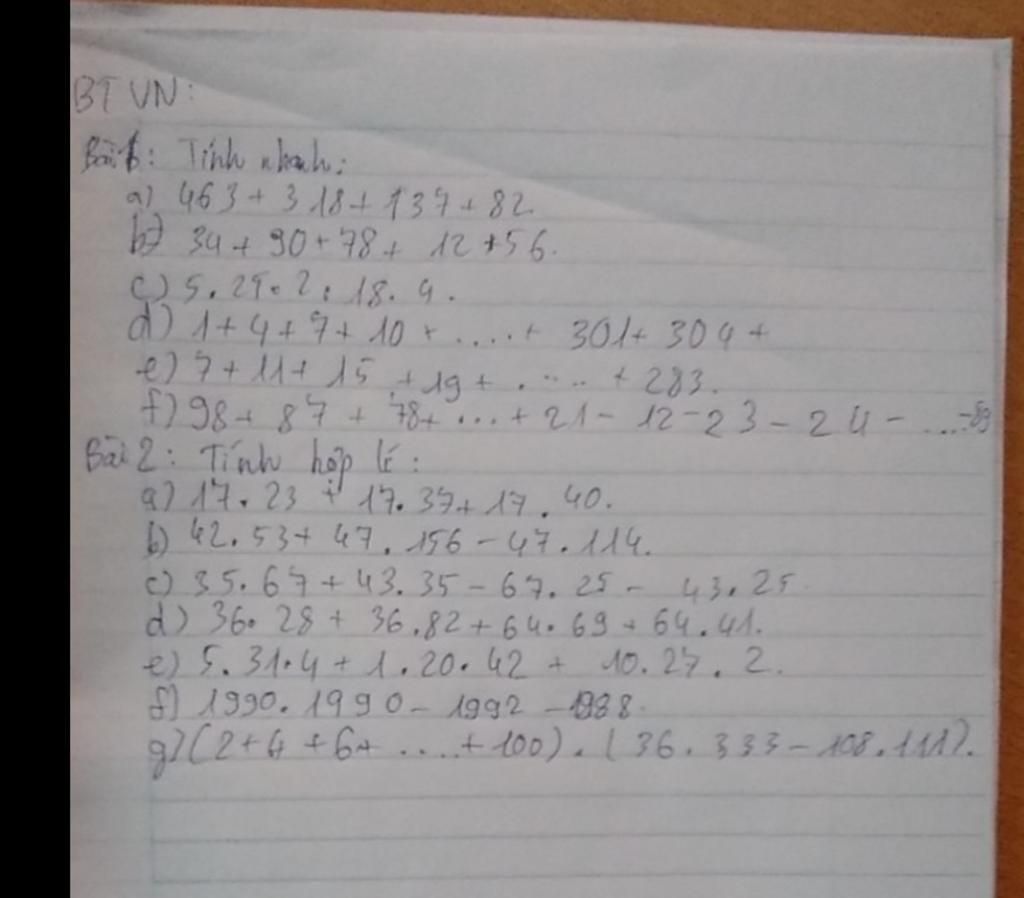 BT VN:
Bài 1: Tính nhanh:
a) 463 + 318 + 137 + 82.
b) 34 + 90 + 78 + 12 + 56.
c) 5. 25. 2. 18. 4.
d) 1 + 4 + 7 + 10 + ..... + 301 + 304 +
e) 7 + 11 + 15 + 19 + ..... + 283.
f) 98 + 87 + 78 + ... + 21 - 12 - 23 - 24 - ... - 89
Bài 2: Tính hợp lí:
a) 17. 23 + 17. 37 + 17. 40.
b) 42. 53 + 47. 156 - 47. 114.
c) 35. 67 + 43. 35 - 67. 25 - 43. 25.
d) 36. 28 + 36. 82 + 64. 69 + 64. 41.
e) 5. 31. 4 + 1. 20. 42 + 10. 27. 2.
f) 1990. 1990 - 1992 - 1988.
g) (2 + 4 + 6 + .... + 100). (36. 333 - 108. 111).